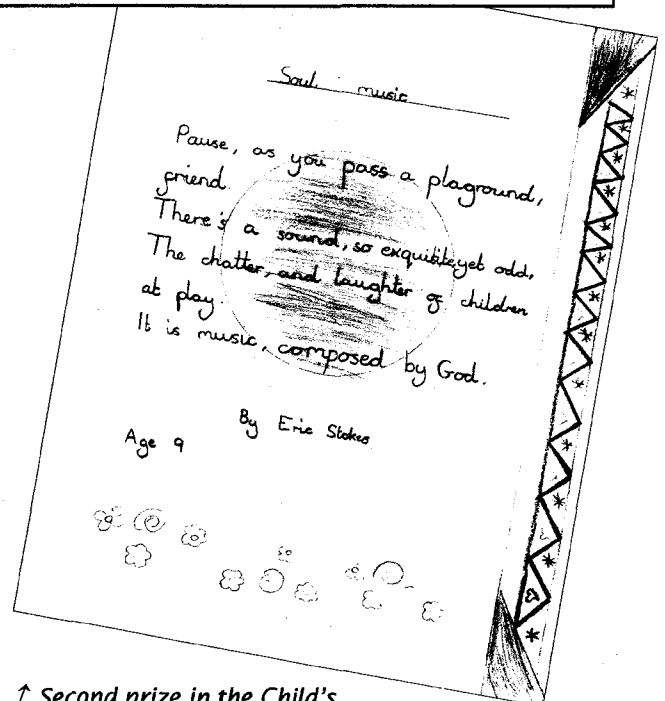 Soul music
Pause, as you pass a plaground,
friend.
There's a sound, so exquisite, yet odd,
The chatter, and laughter of children
at play.
It is music, composed by God.
By Eric Stokes
Age 9
↑ Second prize in the Child's